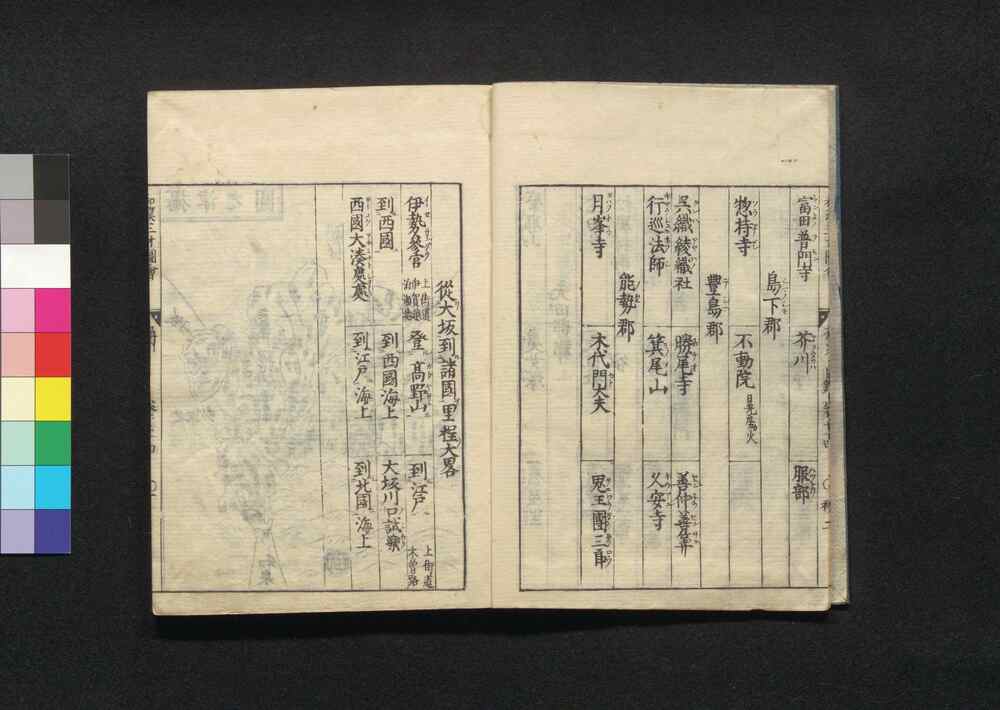 富田普門寺
芥川
服部
島下郡
惣持寺
不動院 日光座火
豐島郡
呉織綾織社
勝尾寺
善仲善筭
行巡法師
箕尾山
久安寺
能勢郡
月峯寺
木代門大夫
鬼王團三郎
從大坂到諸國里程大畧
伊勢參宮 上街道 伊賀越
登髙野山
到江戸 上街道 木曽路
到西國
到西國海上
大坂川口
西國大湊
到江戸海上
到北國海上